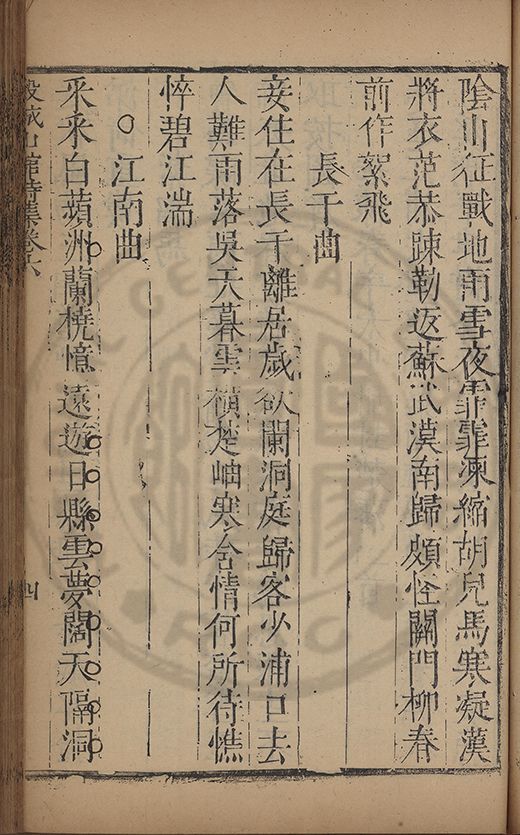 陰山征戰地雨雪夜霏霏凍縮胡兒馬寒凝漢
將衣范恭疎勒返蘇武漠南歸頗怪關門柳春
前作絮飛
長干曲
妾住在長干離居歲欲闌洞庭歸客少浦口去
人難雨落吳天暮雲橫楚岫寒含情何所待憔
悴碧江湍
江南曲
采采白蘋洲蘭橈憶遠遊日縣雲夢闊天隔洞
城山館詩集卷六
四